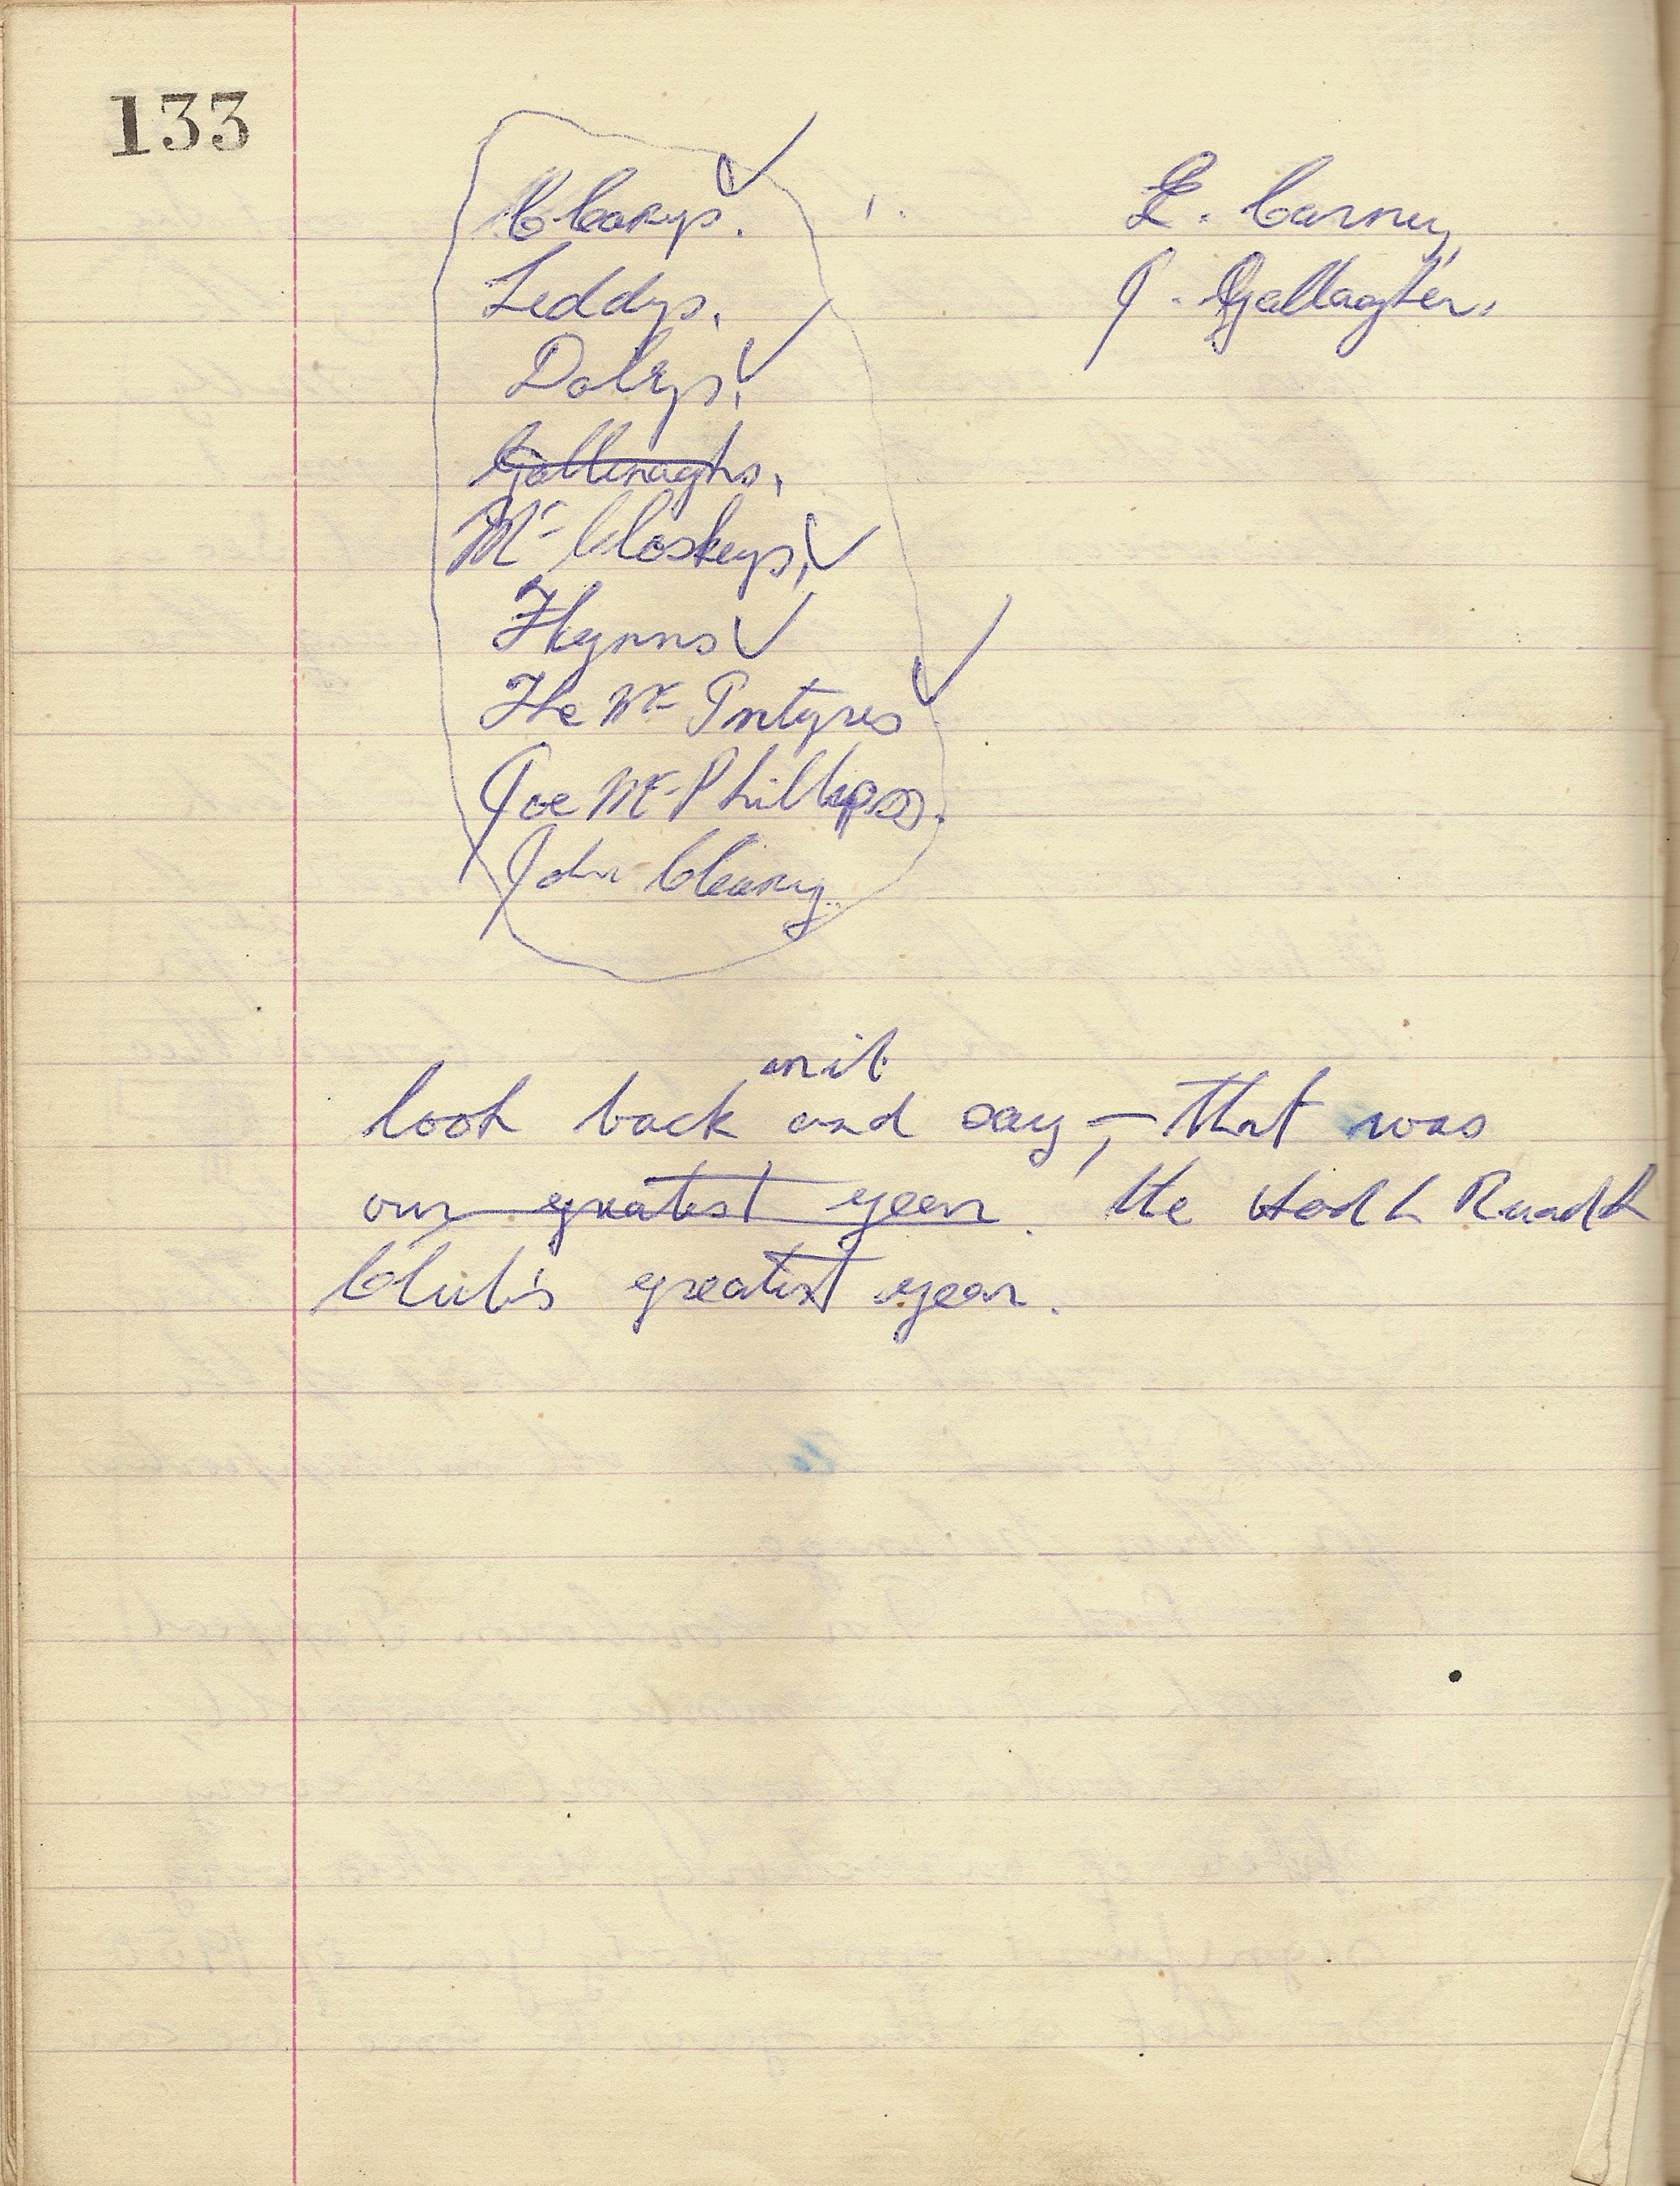 133
Clearys.
E. Carney,
Leddys,
J. Gallagher.
Dalys,
Gallinaghs,
Mc Closkeys,
Flynns
The Mc Intyres
Joe Mc Phillips.
John Cleary.
on it
look back and say, - that was
our greatest year. the Aodh Ruadh
Club's greatest year.